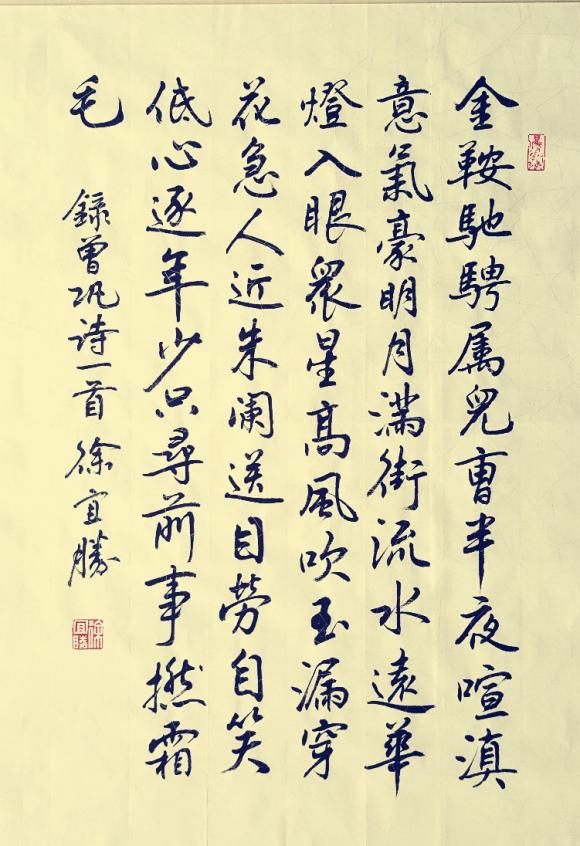 金鞍馳騁属兒曹半夜喧滇
意氣豪明月滿街流水遠華
燈入眼眾星高風吹玉漏穿
花急人近朱澜送目劳自笑
低心逐年少只尋前事撚霜
毛
録曾巩诗一首 徐宜勝